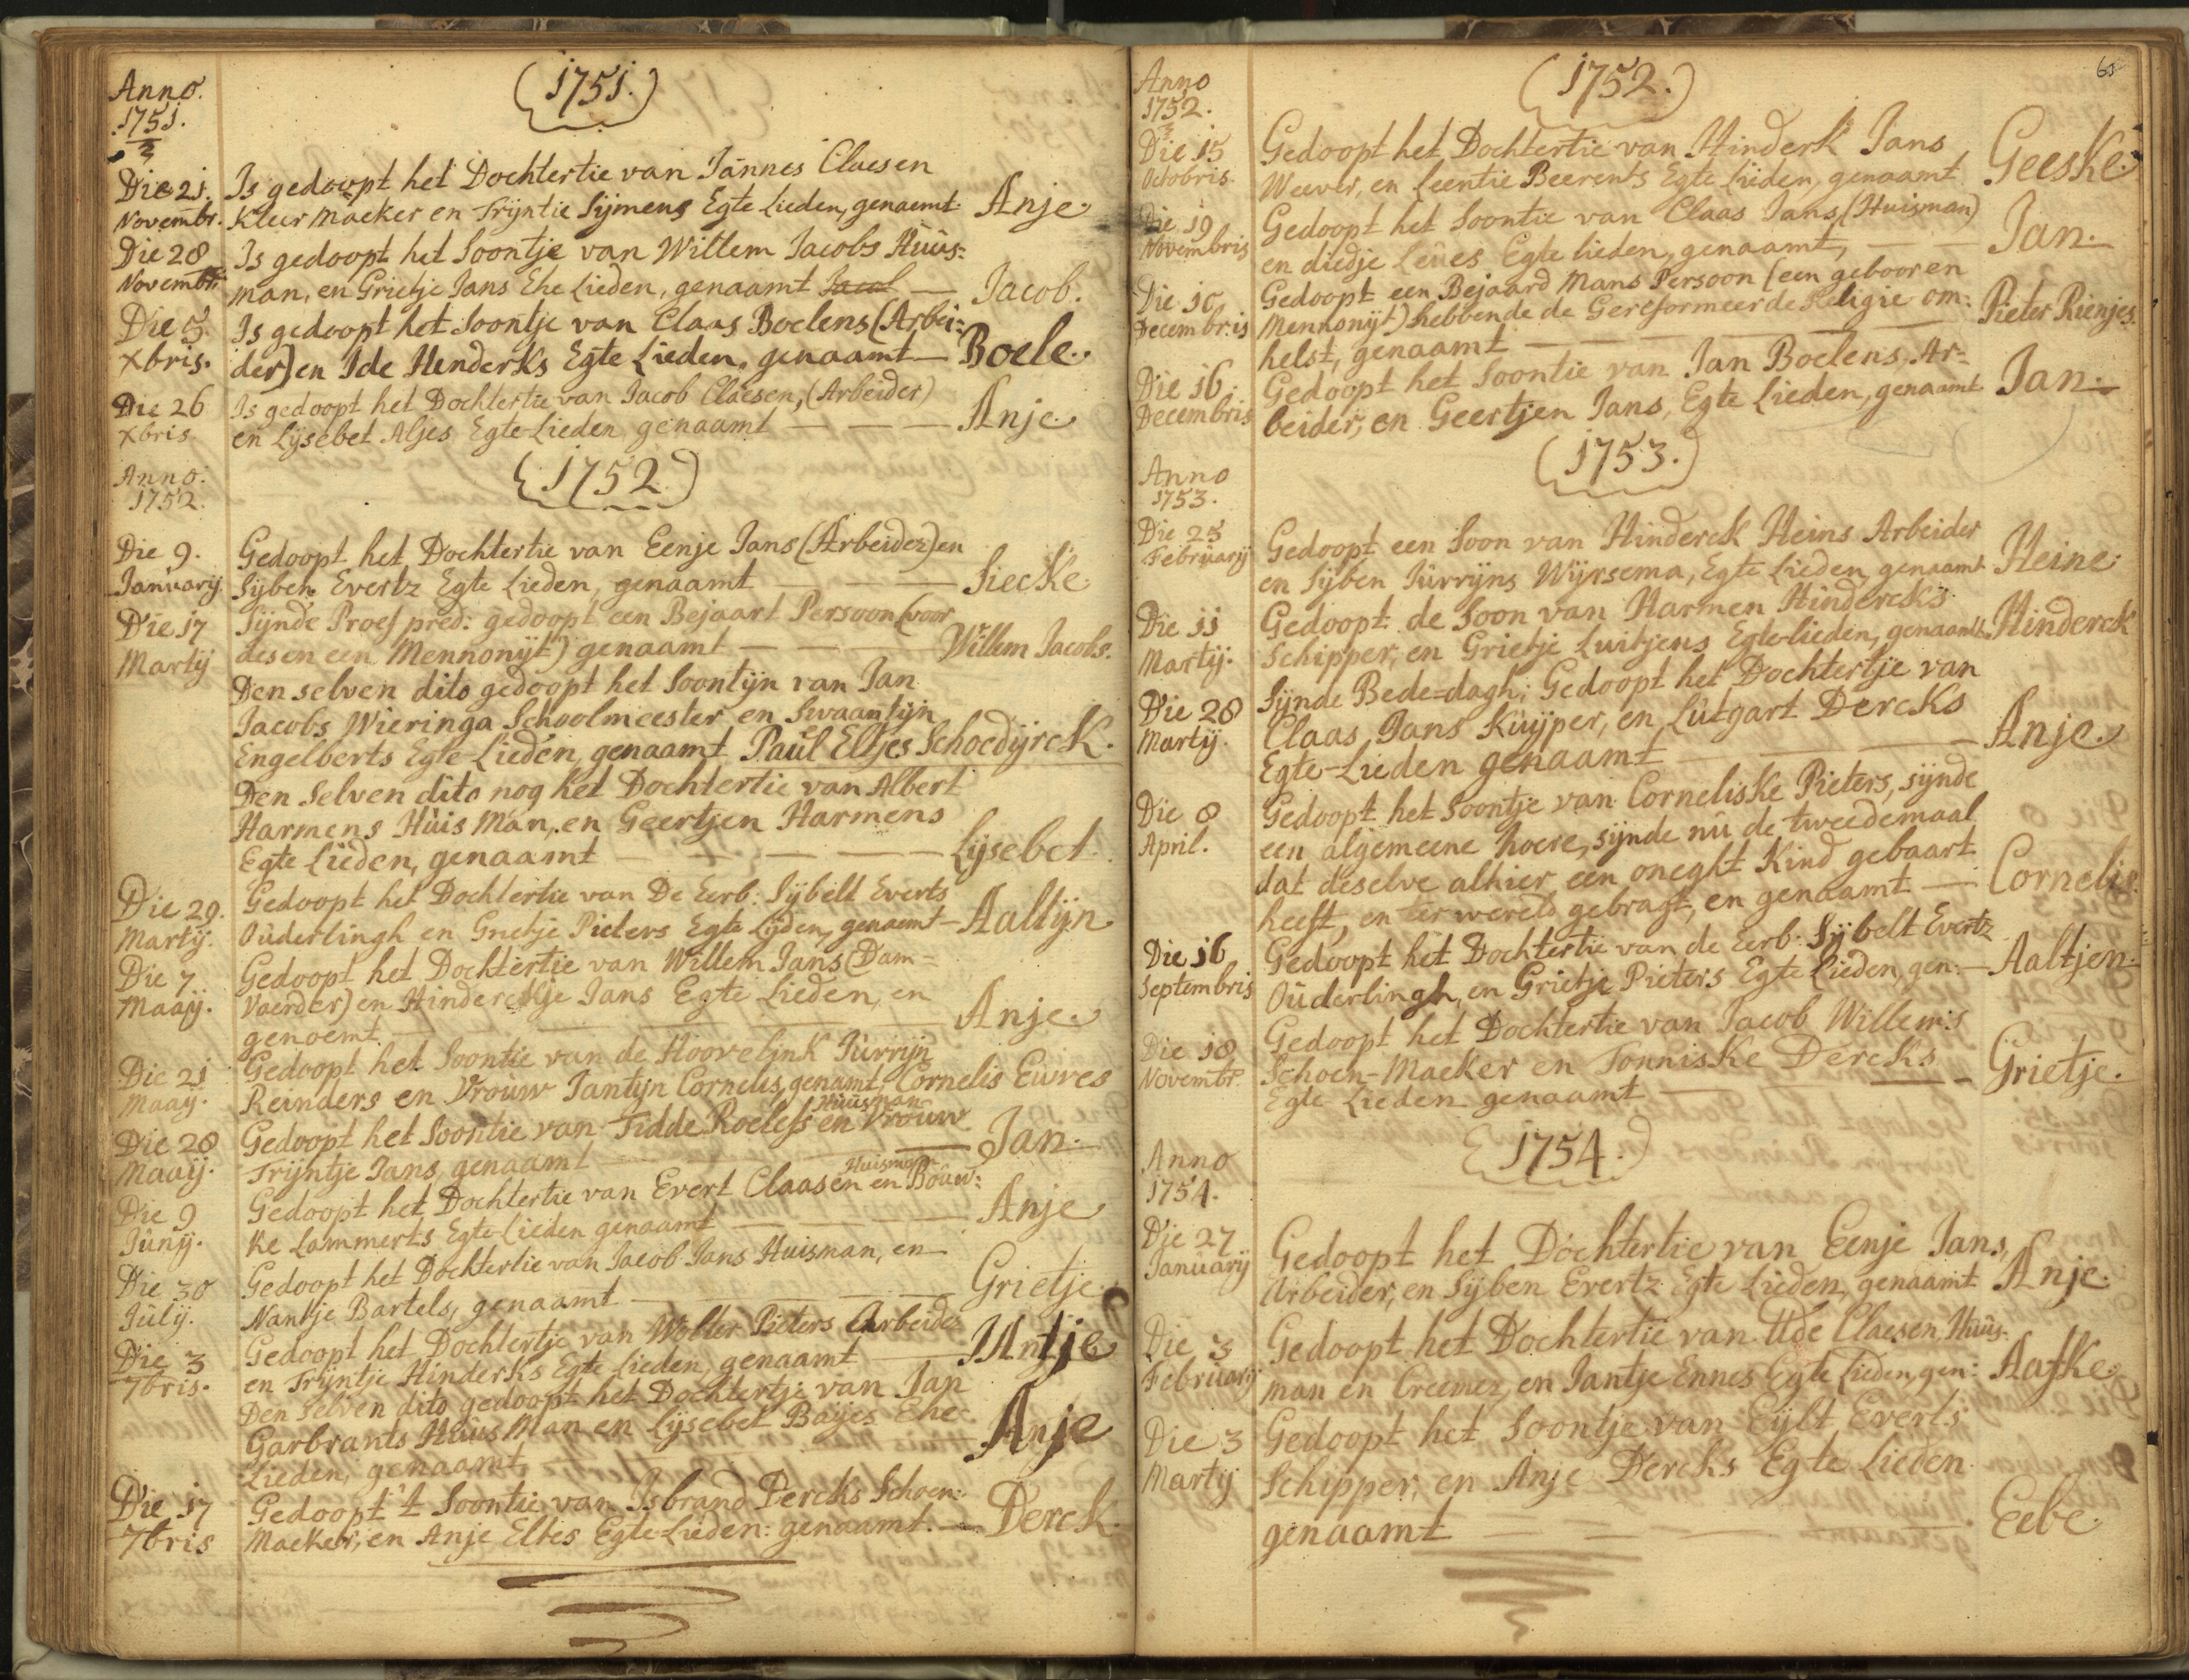 Anno.
1751.
(1751.)
Die 21. Is gedoopt het Dochtertie van Jannes Claesen
Novembr. Kleer Maeker en Trijntie Sijmens Egte Lieden, genaemt. Anje.
Die 28 Is gedoopt het Soontje van Willem Jacobs Huus=
Novembr. man, en Grietje Jans Ehe Lieden, genaamt Jacob — Jacob.
Die 5. Is gedoopt het Soontje van Claas Boelens (Arbei=
Xbris. der) en Ide Henderks Egte Lieden, genaamt — Boele.
Die 26 Is gedoopt het Dochtertie van Jacob Claesen, (Arbeider)
Xbris. en Lijsebet Aljes Egte-Lieden genaamt — — — Anje.
Anno.
1752.
(1752)
Die 9. Gedoopt het Dochtertie van Eenje Jans (Arbeider) en
Januarij. Sijben Evertz Egte Lieden, genaamt — — — Siecke.
Die 17 Sijnde Proef pred: gedoopt een Bejaart Persoon (voor
Martij desen een Mennonijt) genaamt — — — Willem Jacobs.
Den selven dito gedoopt het Soontijn van Jan
Jacobs Wieringa Schoolmeester en Swaantijn
Engelberts Egte-Lieden, genaamt Paul Eltjes Schoedijrck.
Den Selven dito nog het Dochtertie van Albert
Harmens Huis Man, en Geertjen Harmens
Egte Lieden, genaamt — — — Lijsebet.
Die 29. Gedoopt het Dochtertie van De Eerb: Sijbelt Everts
Martij. Ouderlingh en Grietje Pieters Egte Lijden, genaemt — Aaltijn
Die 7 Gedoopt het Dochtertie van Willem Jans (Dam=
Maaij. Vaerder) en Hinderckje Jans Egte Lieden, en
genoemt — — — Anje.
Die 21 Gedoopt het Soontie van de Hoovelink Jurrijn
Maaij. Reinders en Vrouw Jantijn Cornelis, genamt, Cornelis Euwes
Huusman
Die 28 Gedoopt het Soontie van Fidde Roelefs en Vrouw
Maaij. Trijntje Jans, genaamt — — — Jan.
Huisman
Die 9 Gedoopt het Dochtertie van Evert Claasen en Bouw=
Junij. ke Lammerts Egte-Lieden genaamt — — — Anje
Die 30 Gedoopt het Dochtertie van Jacob Jans Huisman, en
Julij. Nantje Bartels, genaamt — — — Grietje.
Die 3 Gedoopt het Dochtertje van Wolter Pieters Arbeider
7bris. en Trijntje Hinderks Egte Lieden, genaamt — Antje
Den Selven dito gedoopt het Dochtertje van Jan
Garbrants Huus Man en Lijsebet Baijes Ehe=
Lieden, genaamt — — — Anje
Die 17 Gedoopt 't Soontie van Isbrand Dercks Schoen=
7bris Maeker, en Anje Eltes Egte-Lieden: genaamt. — Derck.
65
Anno
1752.
(1752.)
Die 15 Gedoopt het Dochtertie van Hinderk Jans
Octobris. Weever, en Leentie Beerents Egte Lieden, genaamt Geeske.
Die 19 Gedoopt het Soontie van Claas Jans (Huisman)
Novembris en diedje Leues Egte lieden, genaamt, — Jan.
Die 10 Gedoopt een Bejaard Mans Persoon (een geboren
Decembris Mennonijt) hebbende de Gereformeerde Religie om=
helst, genaamt — — — Pieter Rienjes.
Die 16. Gedoopt het Soontie van Jan Boelens, Ar=
Decembris beider, en Geertjen Jans, Egte Lieden, genaamt Jan.
Anno
1753.
(1753.)
Die 25 Gedoopt een Soon van Hinderck Heins Arbeider
Februarij en Sijben Jurrijns Wijrsema, Egte Lieden, genaamt Heine.
Die 11 Gedoopt de Soon van Harmen Hindercks
Martij. Schipper, en Grietje Luitjens Egte-lieden, genaamt. Hinderck
Die 28 Sijnde Bede=dagh; Gedoopt het Dochtertje van
Martij. Claas Jans Kuijper, en Lutgart Dercks
Egte-Lieden genaamt — — — Anje.
Die 8 Gedoopt het Soontje van Corneliske Pieters, sijnde
April. een algemeene hoere, sijnde nu de tweedemaal
dat deselve alhier een oneght Kind gebaart
heeft, en ter wereld gebragt, en genaamt — Cornelis.
Die 16 Gedoopt het Dochtertie van de Eerb: Sijbelt Evertz
Septembris Ouderlingh, en Grietje Pieters Egte Lieden, gen: — Aaltjen.
Gedoopt het Dochtertie van Jacob Willems
Die 18 Schoen-Maeker en Tonniske Dercks
Novembr. Egte Lieden genaamt — — — Grietje.
Anno
1754.
(1754.)
Die 27 Gedoopt het Dochtertie van Eenje Jans,
Januarij Arbeider, en Sijben Evertz Egte Lieden, genaamt Anje.
Die 3 Gedoopt het Dochtertie van Ude Claesen Huus=
Februarij man en Creemer, en Jantje Ennes Egte Lieden, gen: Aafke.
Die 3 Gedoopt het Soontje van Eijlt Everts
Martij Schipper, en Anje Dercks Egte Lieden
genaamt — — — Eebe.